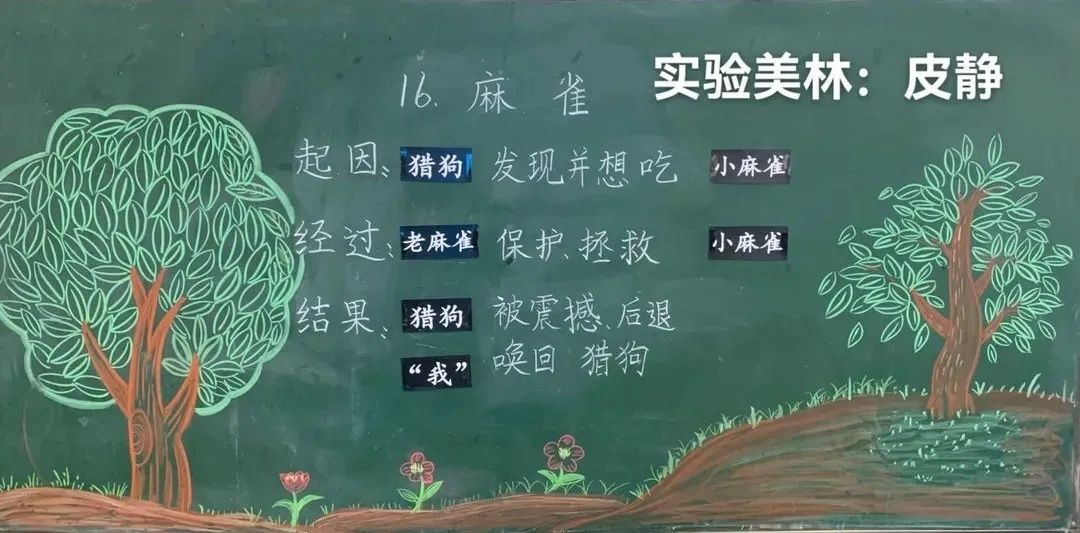 实验美林：皮静
16. 麻雀
起因： 猎狗 发现并想吃 小麻雀
经过： 老麻雀 保护、拯救 小麻雀
结果： 猎狗 被震撼、后退
“我” 唤回 猎狗